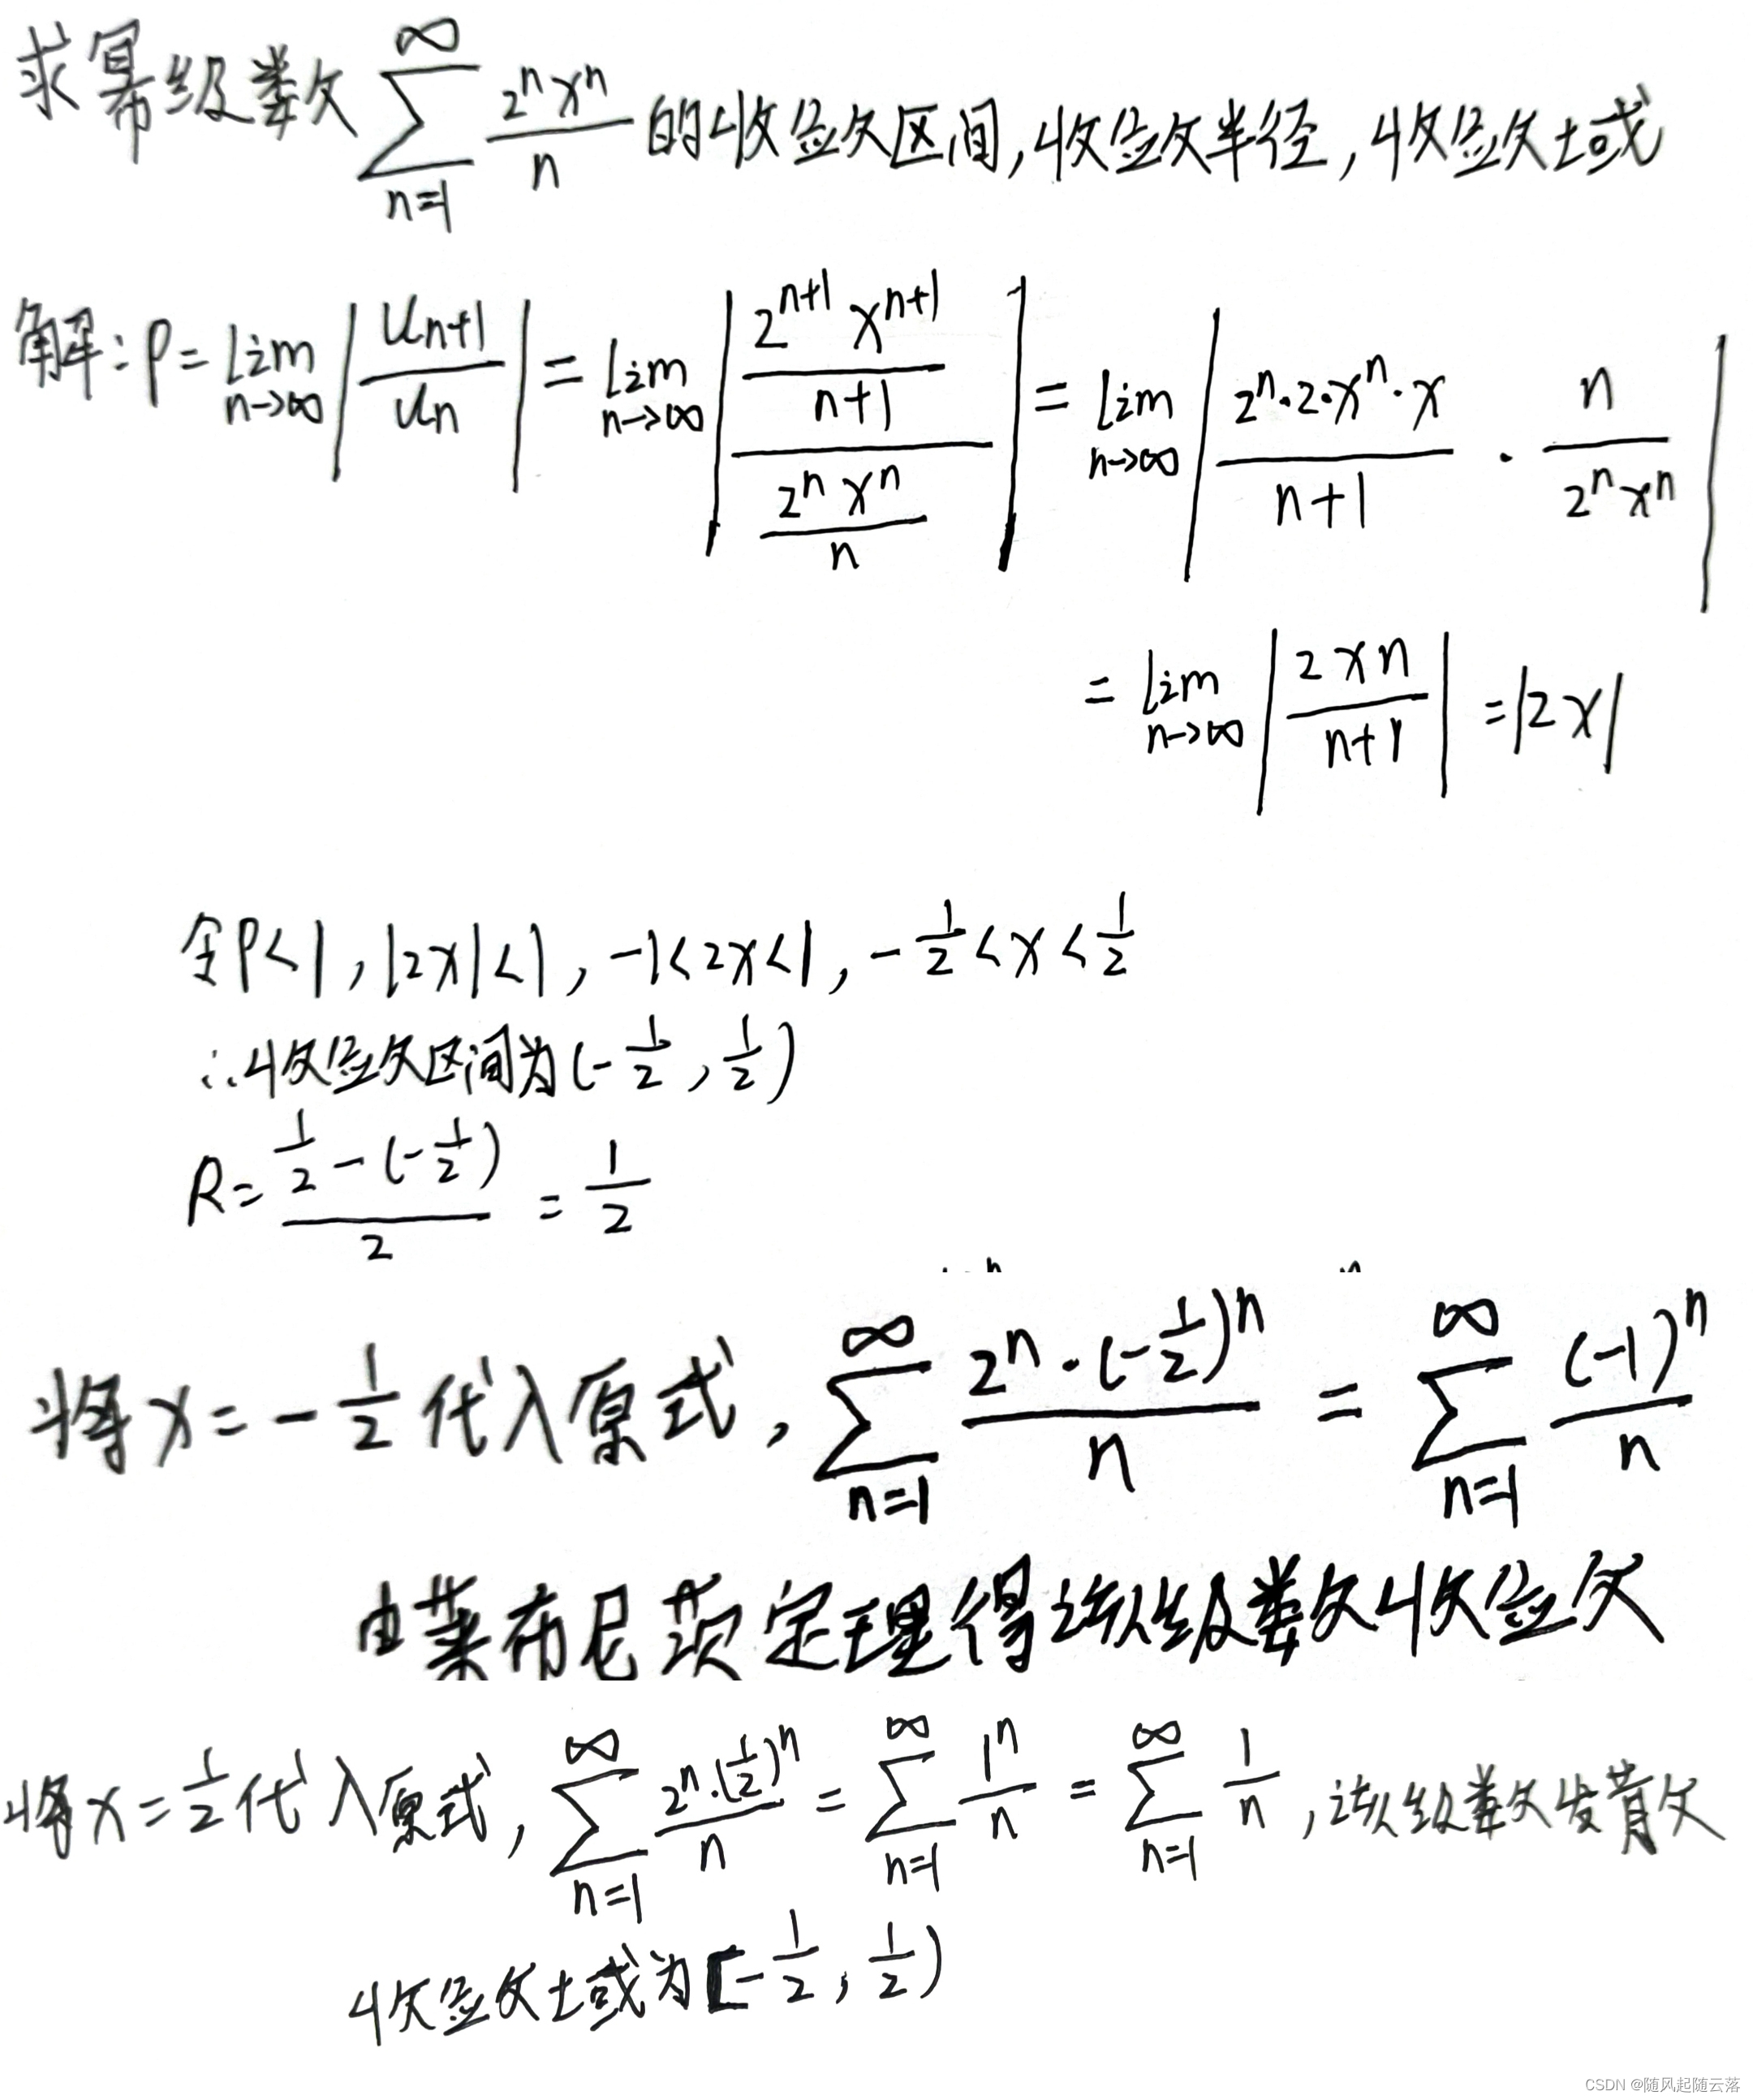 求幂级数 ∑_{n=1}^{∞} 2ⁿxⁿ/n 的收敛区间,收敛半径,收敛域
解:ρ = lim_{n→∞} |u_{n+1}/u_n| = lim_{n→∞} |(2^{n+1}x^{n+1}/(n+1))/(2ⁿxⁿ/n)| = lim_{n→∞} |(2ⁿ·2·xⁿ·x)/(n+1) · n/(2ⁿxⁿ)|
= lim_{n→∞} |2xn/(n+1)| = |2x|
令ρ<1, |2x|<1, -1<2x<1, -1/2<x<1/2
∴收敛区间为(-1/2, 1/2)
R = (1/2-(-1/2))/2 = 1/2
将x=-1/2代入原式, ∑_{n=1}^{∞} 2ⁿ·(-1/2)ⁿ/n = ∑_{n=1}^{∞} (-1)ⁿ/n
由莱布尼茨定理得该级数收敛
将x=1/2代入原式, ∑_{n=1}^{∞} 2ⁿ·(1/2)ⁿ/n = ∑_{n=1}^{∞} 1ⁿ/n = ∑_{n=1}^{∞} 1/n ,该级数发散
收敛域为[-1/2, 1/2)
CSDN @随风起随云落